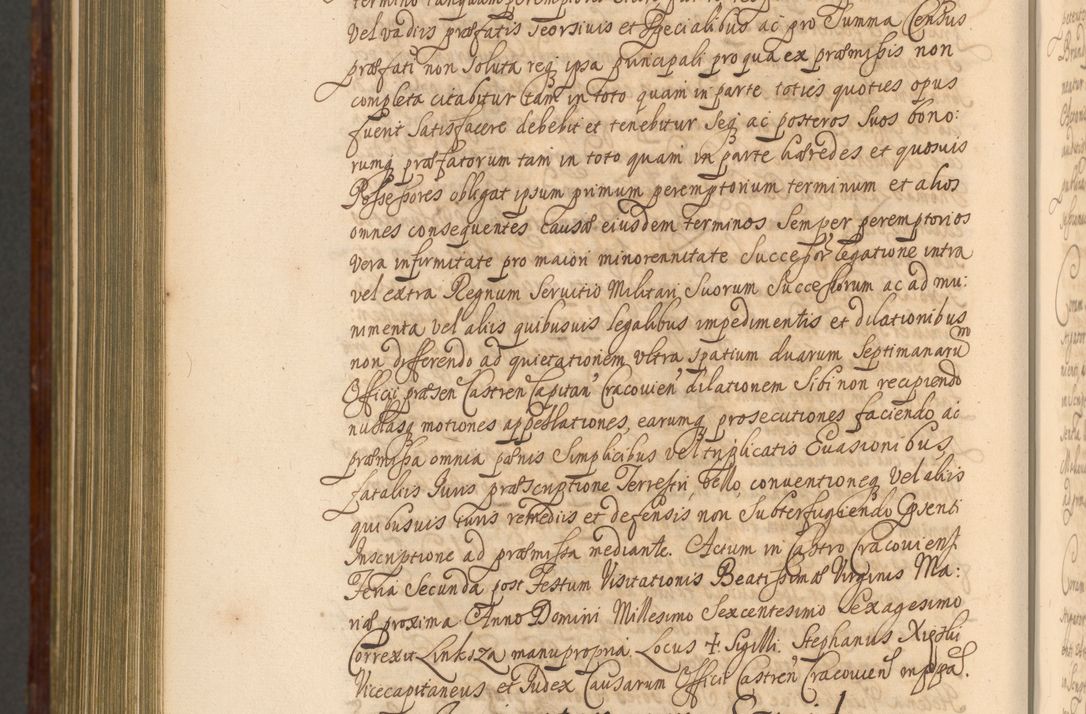 vel vadiis præfatis seorsivis et specialibus ac pro Summa Census
præfati non soluta req; ipsa principali pro qua ex præmissis non
completa citabitur tam in toto quam in parte toties quoties opus
fuerit satisfacere debebit et tenebitur seq; ac posteros suos bono:
rumq; præfatorum tam in toto quam in parte hæredes et quosvis
Possessores obligat ipsum primum peremptorium terminum et alios
omnes consequentes causæ eiusdem terminos semper peremptorios
vera infirmitate pro maiori minorennitate Successor: legatione intra
vel extra Regnum Servitio Militari Suorum Successorum ac ad mu:
nimenta vel aliis quibusvis legalibus impedimentis et dilationibus
non differendo ad quietationem ultra spatium duarum Septimanarum
Officii præsen Castren Capitan Cracovien dilationem sibi non recipiendo
nullasq; motiones appellationes, earumq; prosecutiones faciendo, ac
præmissa omnia pœnis Simplicibus vel triplicatis Evasionibus
fataliis Iuris præscriptione Terrestri, bello, conventioneq; vel aliis
quibusvis iuris remediis et defensis non Subterfugiendo Præsenti
Inscriptione ad præmissa mediante. Actum in Castro Cracoviens
Feria Secunda post Festum Visitationis Beatissimæ Virginis Ma:
riæ proxima Anno Domini Millesimo Sexcentesimo Sexagesimo
Correxit Linksza manu propria. Locus ✝ Sigilli. Stephanus
Vicecapitaneus et Iudex Causarum Officii Castren Cracovien mppa.